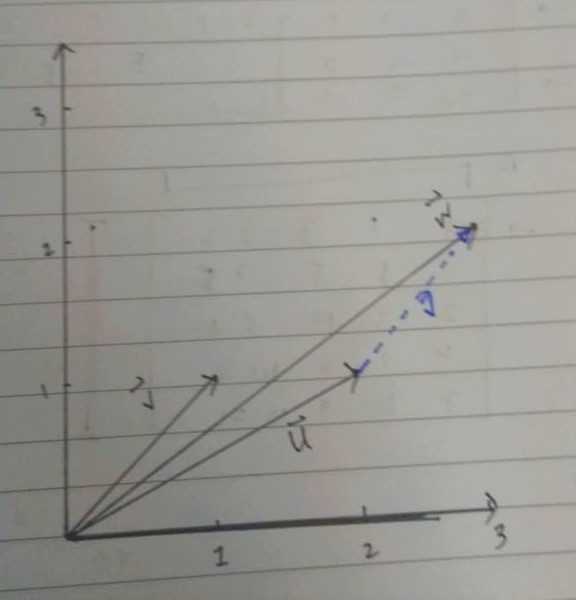 3
2
1
v⃗
u⃗
1
2
3